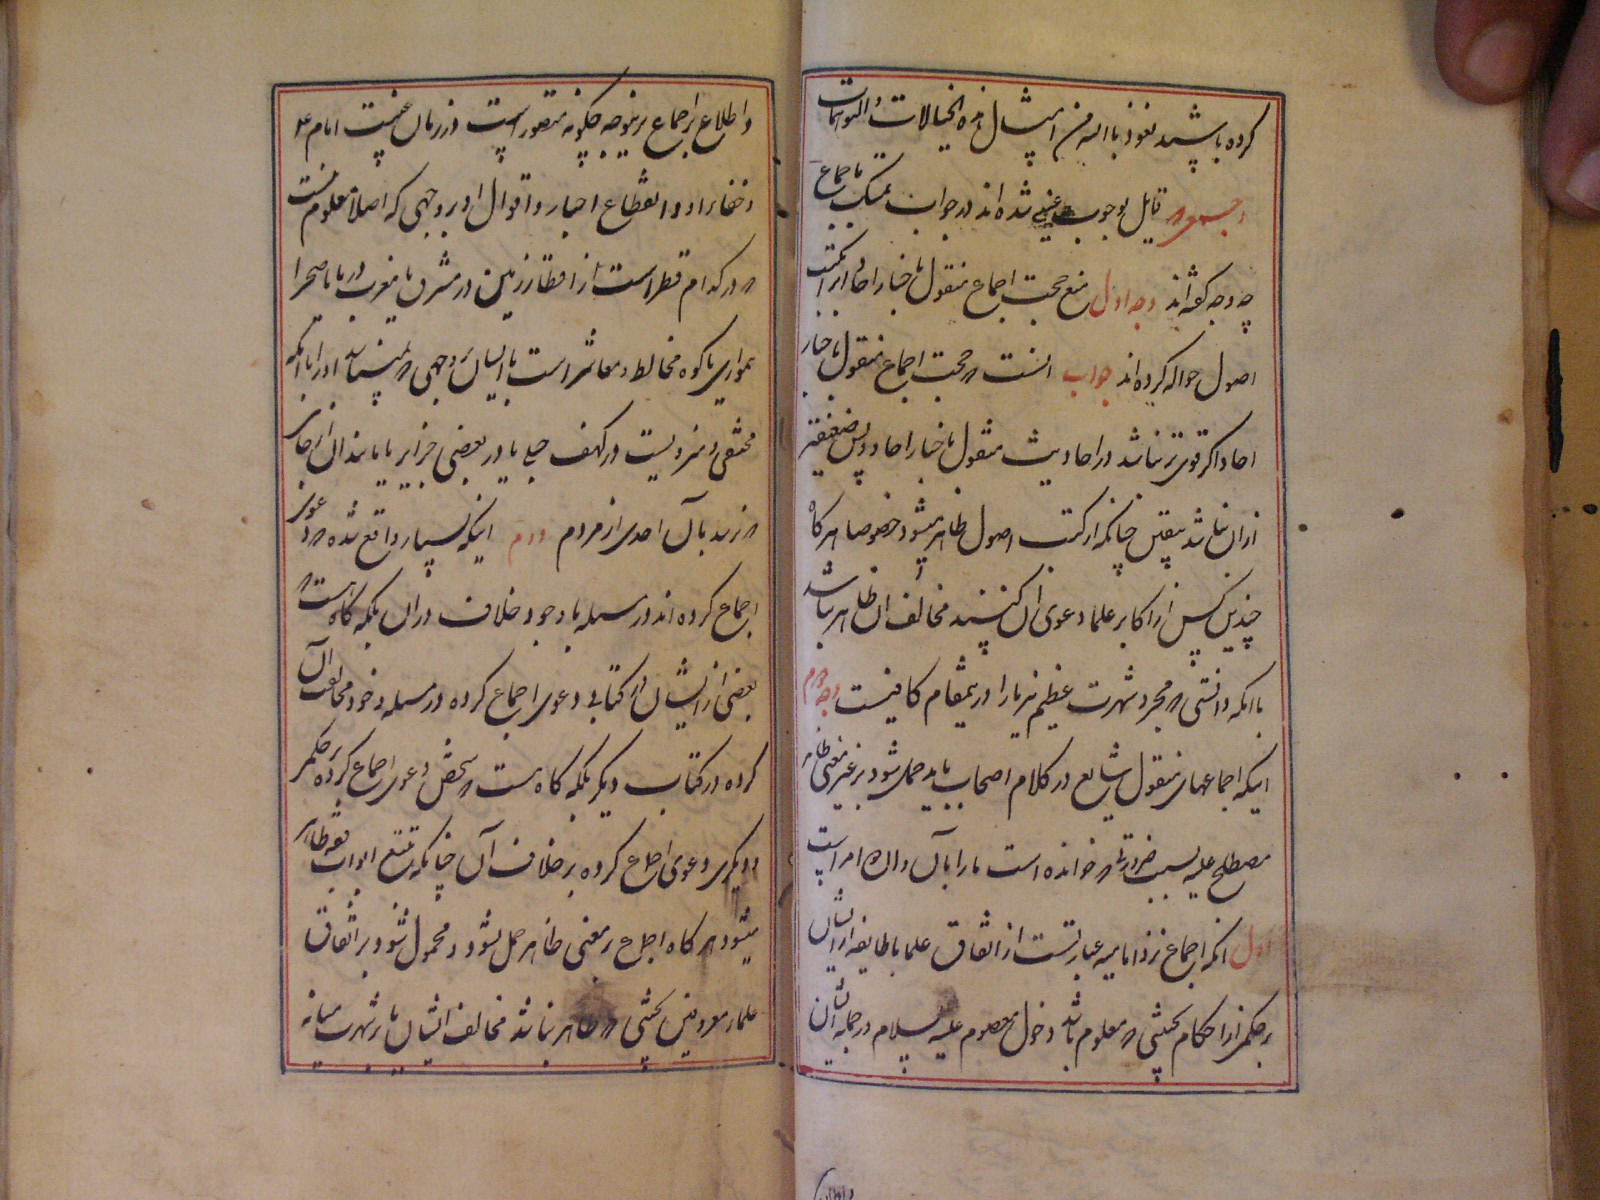 کرده باشید نعوذ بالله من امثال هذه الخیالات و التوهمات
قایل بوجوب عینی شده اند در جواب تمسک باجماع
چه وجه گفته اند وجه اول منع حجیت اجماع منقول باخبار احاد
اصول حواله کرده اند جواب انست که حجیت اجماع منقول باخبار
احاد اگر قوی تر نباشد در احادیث منقول باخبار احاد پس ضعیفتر
ازان نباشد بیقین چنانکه از کتب اصول ظاهر میشود خصوصا هر گاه
چندین کس از اکابر علما دعوی ان کنند مخالف ان ظاهر نباشد
با انکه دانستی که مجرد شهرت عظیم نیز ما را در ینمقام کافیست وجه دوم
اینکه اجماعهای منقول شایع در کلام اصحاب باید حمل شود بر غیر معنی ظاهر
مصطلح علیه بسبب ضرورتی که خوانده است ما را بان و ان امر است
اول انکه اجماع نزد امامیه عبارتست از اتفاق علما یا طایفه از ایشان
بر حکمی از احکام بحیثی که معلوم باشد دخول معصوم علیه السلام در جمله ایشان
و اطلاع بر اجماع بر ینوجه چگونه متصور است در زمان غیبت امام ع
و خفاء او و انقطاع اخبار و اقوال او بر وجهی که اصلا معلوم نیست
که در کدام قطر است از اقطار زمین در مشرق یا مغرب دریا یا صحرا
همواری یا کوه مخالط و معاشر است با ایشان وجهی که نمیشناسند او را یا انکه
مختفی و منزویست در کهف جبل یا در بعضی جزایر یا بیابان
که نرسد بان احدی از مردم دوم اینکه بسیار واقع شده که دعوی
اجماع کرده اند در مسله با وجود خلاف دران بلکه گاه هست که
بعضی از ایشان در کتابی دعوی اجماع کرده در مسله و خود مخالفت ان
کرده در کتاب دیگر بلکه گاه هست که شخصی دعوی اجماع کرده بر حکمی
و دیگری دعوی اجماع کرده بر خلاف آن چنانکه بتتبع ابواب فقه ظاهر
میشود هر گاه اجماع بر معنی ظاهر حمل نشود و محمول شود بر اتفاق
علماء معروفین بحیثی که ظاهر نباشد مخالف ایشان یا بر شهرت میانه